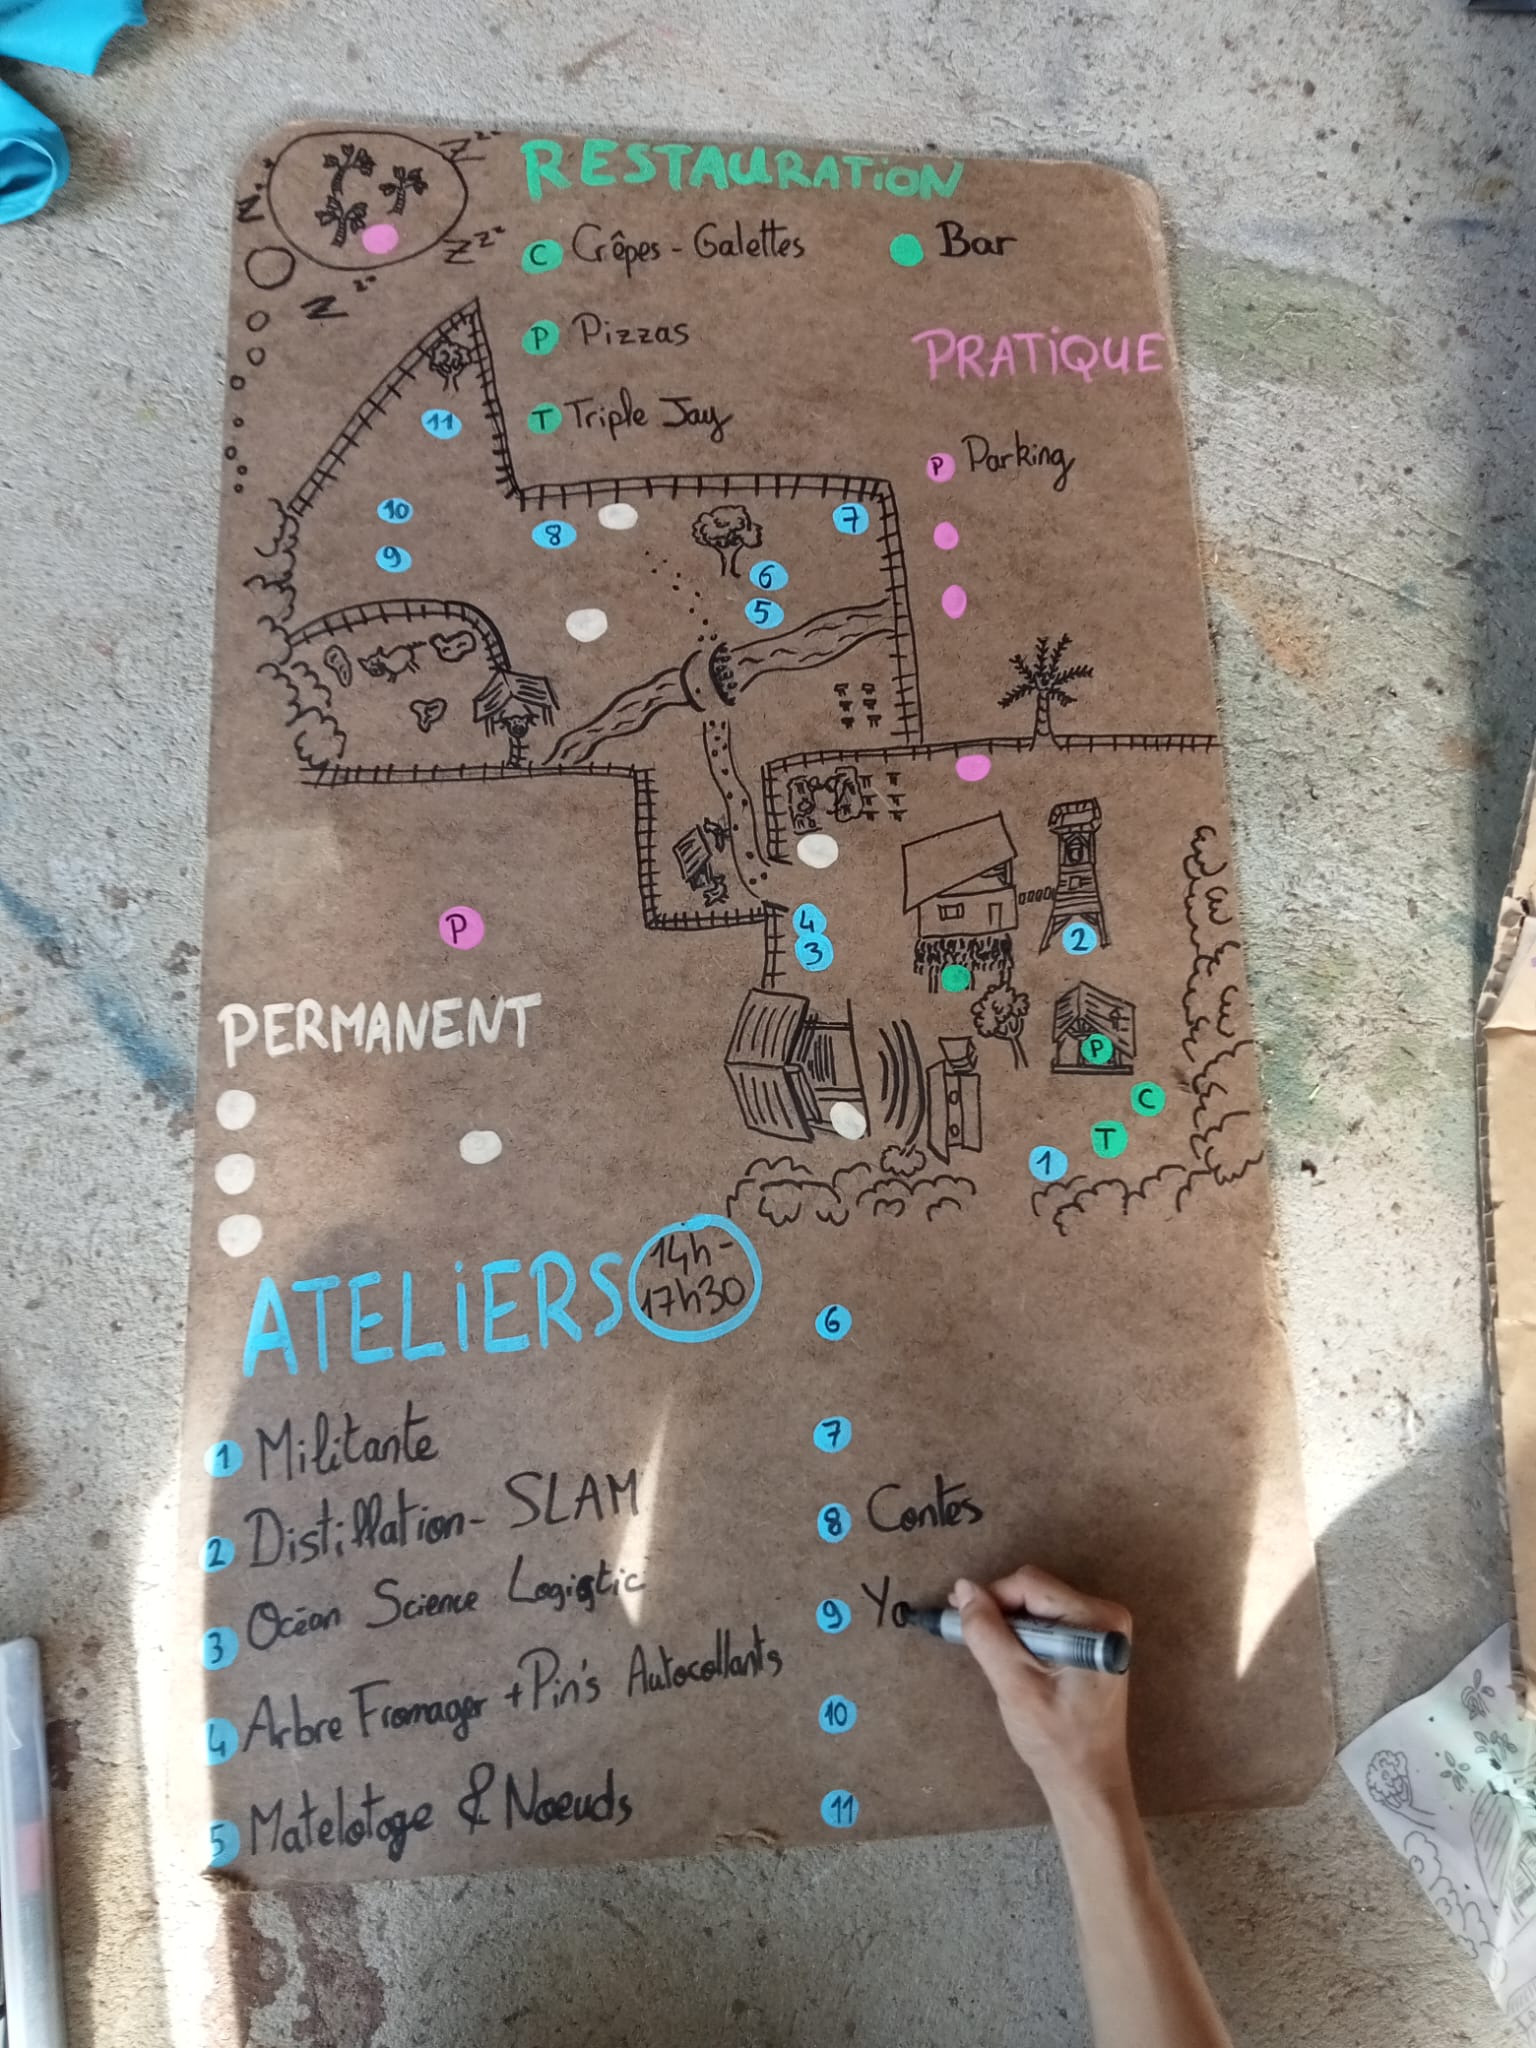 z z z
RESTAURATiON
C Crêpes - Galettes
Bar
P Pizzas
T Triple Jay
PRATiQUE
P Parking
11
10
9
8
7
6
5
4
3
2
P
P
C
T
1
PERMANENT
ATELiERS 14h-
17h30
1 Militante
2 Distillation - SLAM
3 Océan Science Logistic
4 Arbre Fromager + Pin's Autocollants
5 Matelotage & Noeuds
6
7
8 Contes
9 Yo
10
11